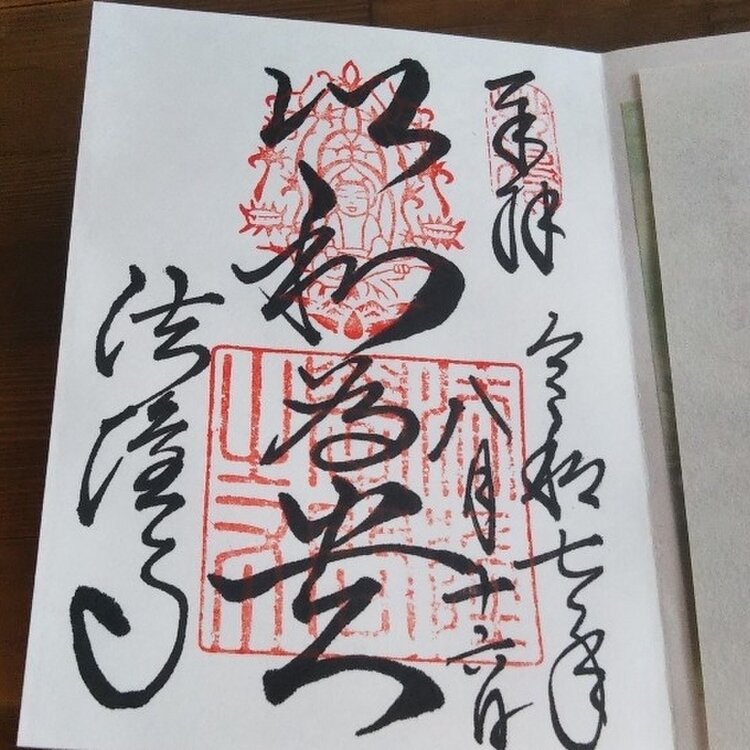 奉拝
令和七年
八月十六日
以和為貴
法隆寺